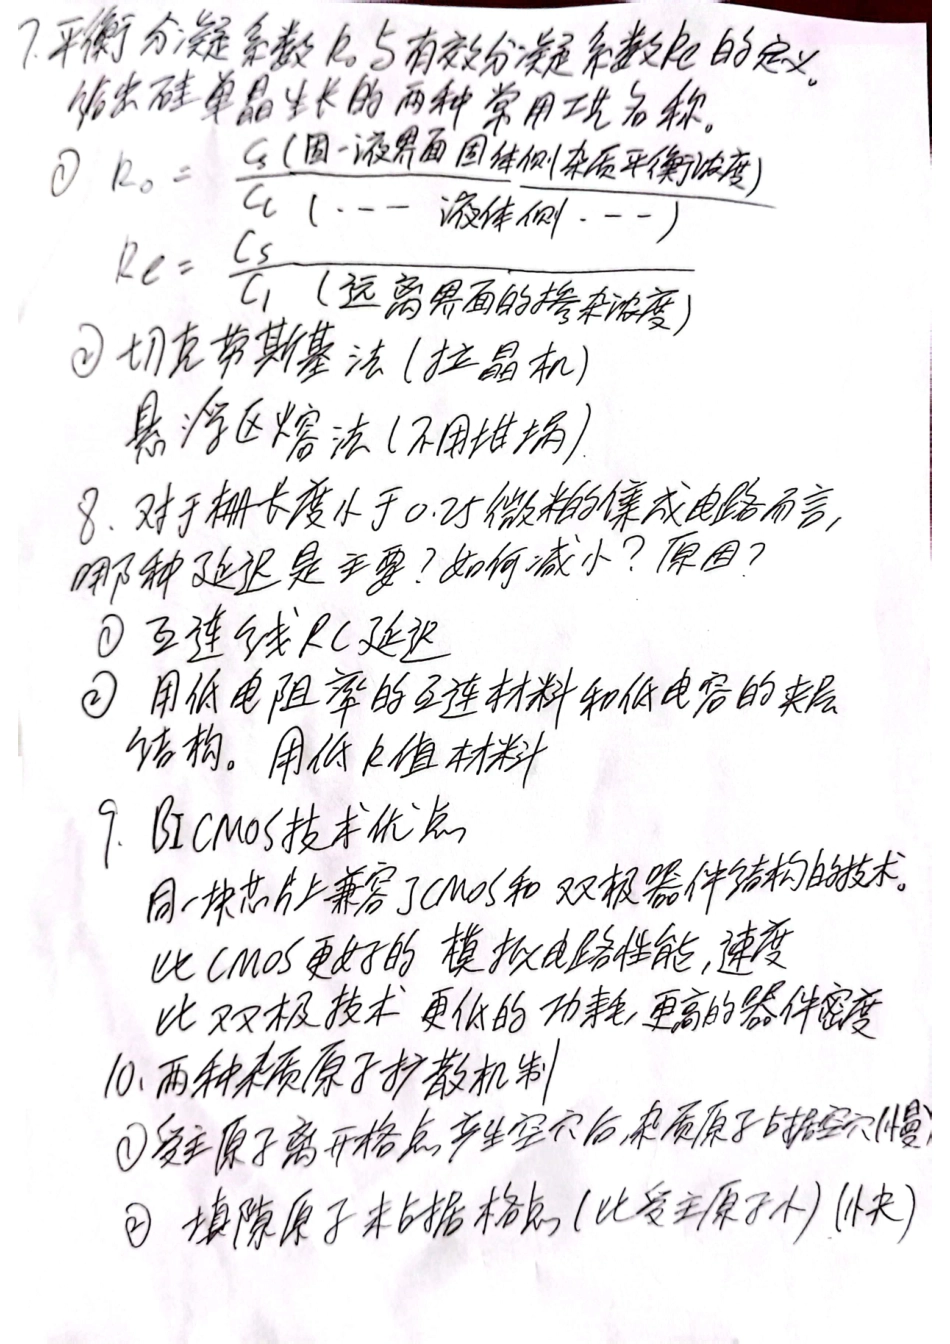 7.平衡分凝系数k₀与有效分凝系数ke的定义。
给出硅单晶生长的两种常用工艺名称。
① k₀ = Cs(固-液界面固体侧杂质平衡浓度)
Cl (--- 液体侧 ---)
ke = Cs
Cl (远离界面的掺杂浓度)
② 切克劳斯基法(拉晶机)
悬浮区熔法(不用坩埚)
8. 对于栅长度小于0.25微米的集成电路而言,
哪种延迟是主要?如何减小?原因?
① 互连线RC延迟
② 用低电阻率的互连材料和低电容的夹层
结构。用低k值材料
9. BICMOS技术优点
同一块芯片上兼容了CMOS和双极器件结构的技术。
比CMOS更好的 模拟电路性能,速度
比双极技术 更低的功耗,更高的器件密度
10、两种杂质原子扩散机制
①受主原子离开格点产生空穴后,杂质原子占据空穴(慢)
② 填隙原子未占据格点(比受主原子小)(快)